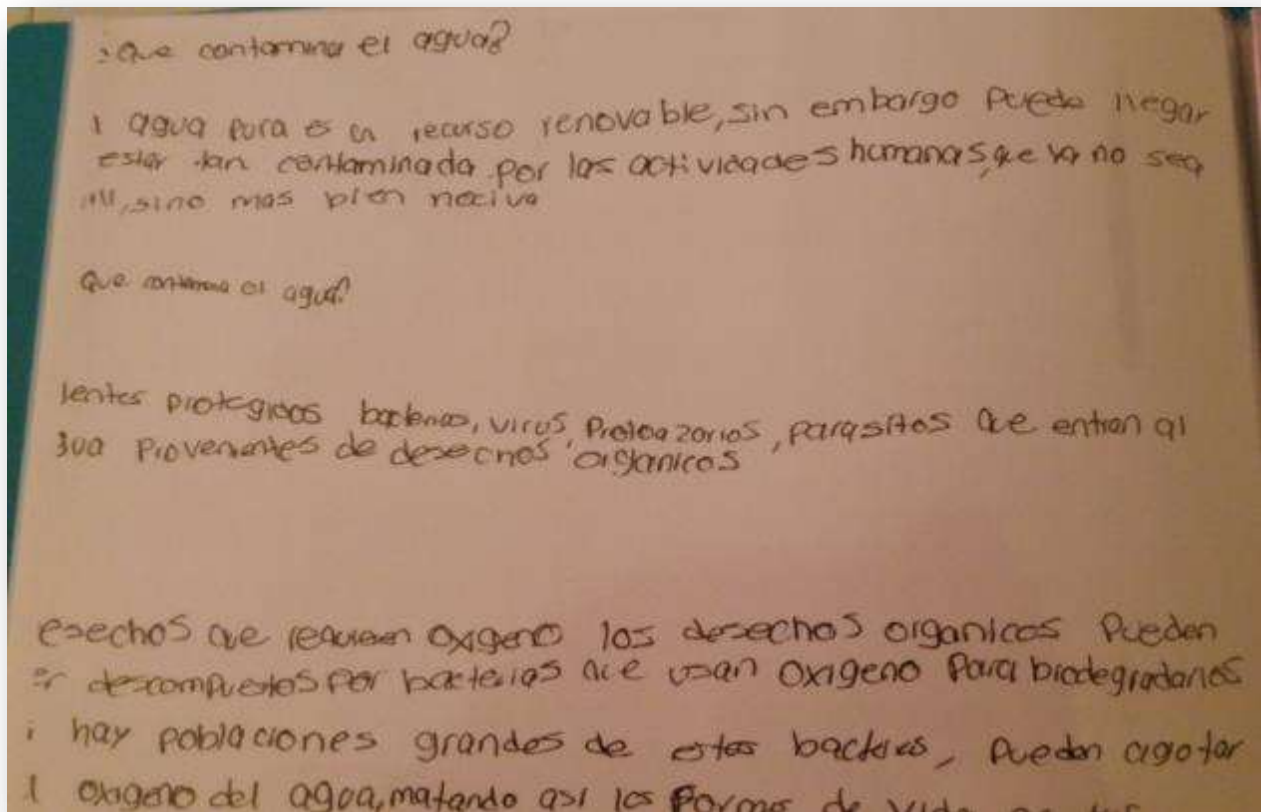 ¿Que contamina el agua?
l agua pura es un recurso renovable, sin embargo puede llegar
estar tan contaminada por las actividades humanas, que ya no sea
til, sino mas bien nociva
Que contamina el agua?
entes
bacterias, virus, Protoazorios, parasitos que entran al
gua Provenientes de desechos organicos
esechos que requieren oxigeno los desechos organicos Pueden
er descompuestos por bacterias que usan oxigeno Para biodegradarlos
i hay poblaciones grandes de estas bacterias, pueden agotar
l oxigeno del agua, matando asi las formas de vida